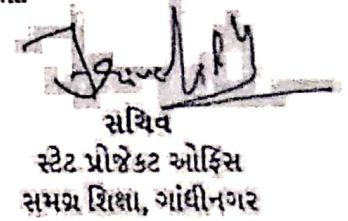 સચિવ
સ્ટેટ પ્રોજેકટ ઓફિસ
સમગ્ર શિક્ષા, ગાંધીનગર